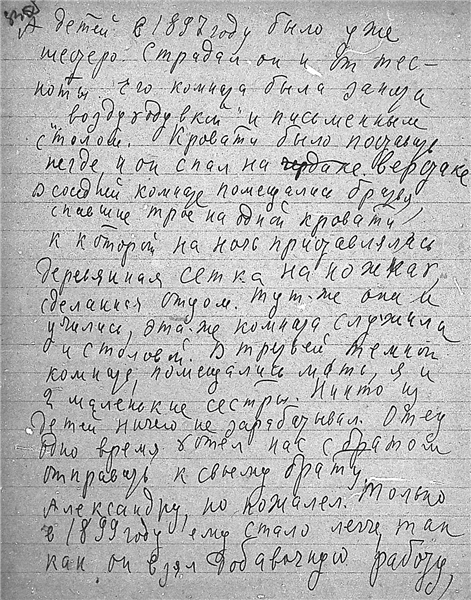 А детей в 1897 году было уже
шестеро. Страдал он и от тес-
ноты. Его комната была занята
"воздуходувкой" и письменным
столом. Кровати было поставить
негде, и он спал на чердаке. верстаке
В соседней комнате помещались братья,
спавшие трое на одной кровати,
к которой на ночь приставлялась
деревянная сетка на ножках,
сделанная отцом. Тут-же они и
учились, эта-же комната служила
и столовой. В третьей темной
комнате, помещались мать, я и
2 маленькие сестры. Никто из
детей ничего не зарабатывал. Отец
одно время хотел нас с братом
отправить к своему брату,
Александру, но пожалел. Только
в 1899 году ему стало легче, так
как он взял добавочную работу,